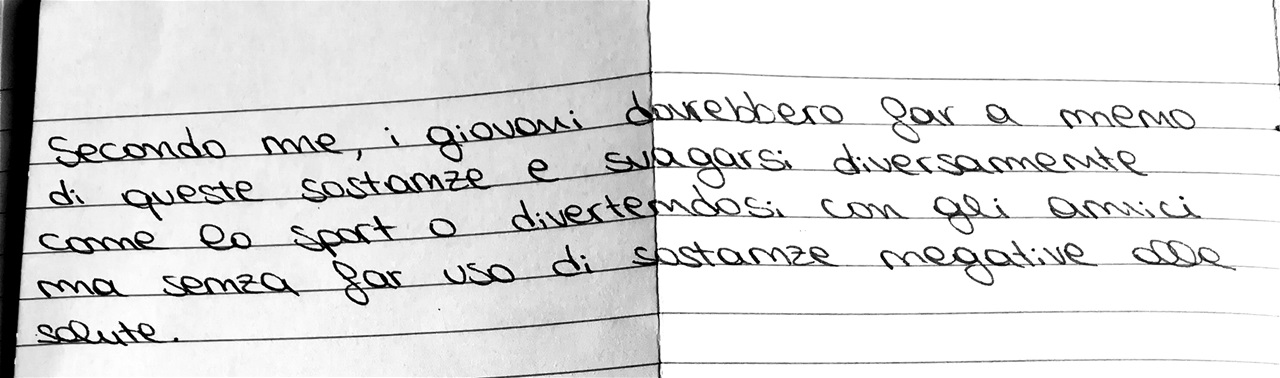 Secondo me, i giovani dovrebbero far a meno
di queste sostanze e svagarsi diversamente
come lo sport o divertendosi con gli amici
ma senza far uso di sostanze negative alla
salute.